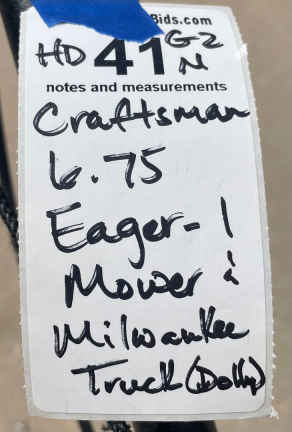 Bids.com
HD 41 G2
N
notes and measurements
Craftsman
6.75
Eager-1
Mower &
Milwaukee
Truck (Dolly)